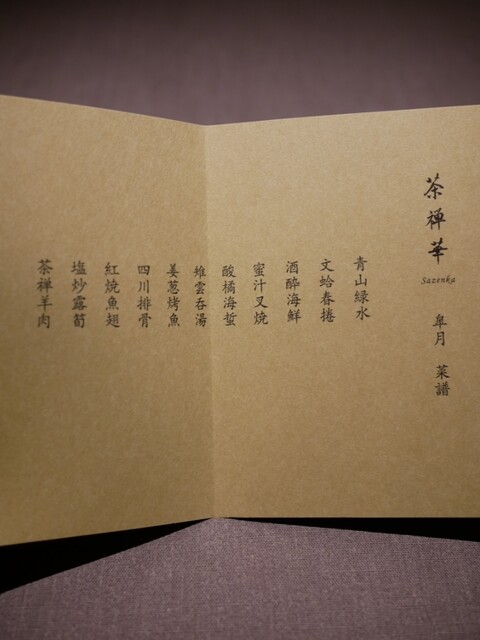 茶禅華
Sazenka
皐月 菜譜
青山緑水
文蛤春捲
酒酔海鮮
蜜汁叉焼
酸橘海蜇
雉雲呑湯
姜葱烤魚
四川排骨
紅焼魚翅
塩炒露筍
茶禅羊肉